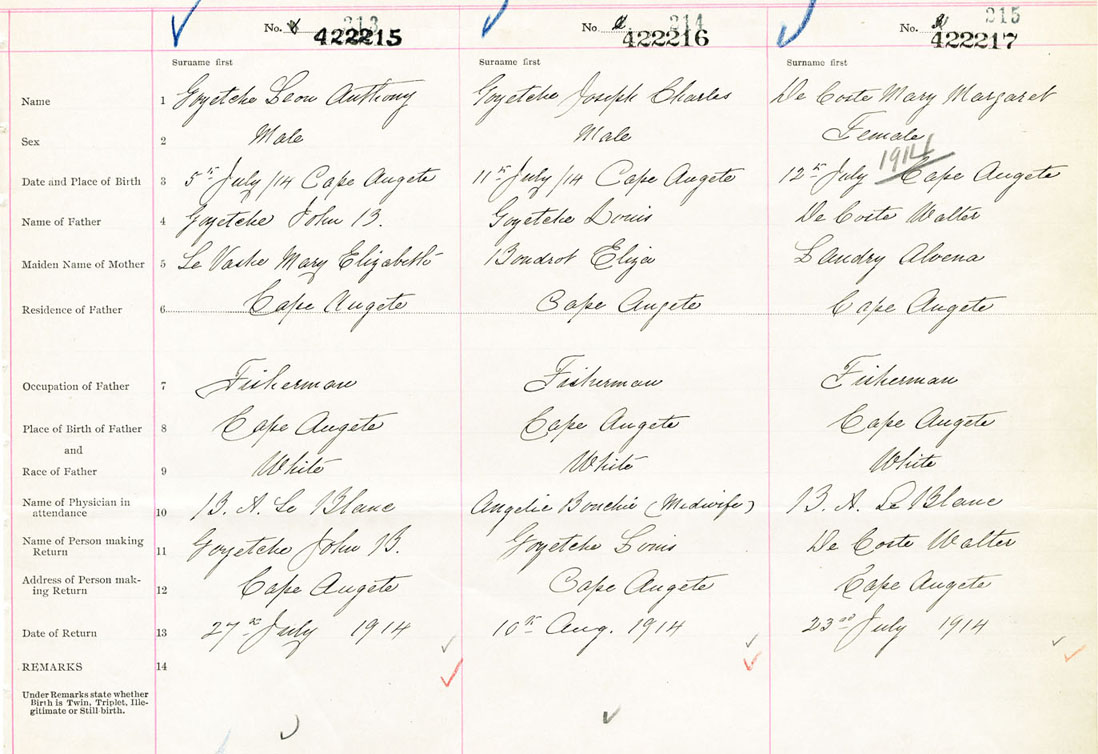 No. 213 No. 214 No. 215
422215 422216 422217
Surname first Surname first Surname first
Name 1 Goyetche Leon Anthony Goyetche Joseph Charles De Coste Mary Margaret
Sex 2 Male Male Female
1914
Date and Place of Birth 3 5th July/14 Cape Augete 11th July/14 Cape Augete 12th July Cape Augete
Name of Father 4 Goyetche John B. Goyetche Louis De Coste Walter
Maiden Name of Mother 5 Le Vashe Mary Elizabeth Boudrot Eliza Landry Alvena
Residence of Father 6 Cape Augete Cape Augete Cape Augete
Occupation of Father 7 Fisherman Fisherman Fisherman
Place of Birth of Father 8 Cape Augete Cape Augete Cape Augete
and
Race of Father 9 White White White
Name of Physician in
attendance 10 B. A. Le Blanc Angelie Bouchie (Midwife) B. A. Le Blanc
Name of Person making
Return 11 Goyetche John B. Goyetche Louis De Coste Walter
Address of Person mak-
ing Return 12 Cape Augete Cape Augete Cape Augete
Date of Return 13 27th July 1914 10th Aug. 1914 23rd July 1914
REMARKS 14
Under Remarks state whether
Birth is Twin, Triplet, Ille-
gitimate or Still birth.